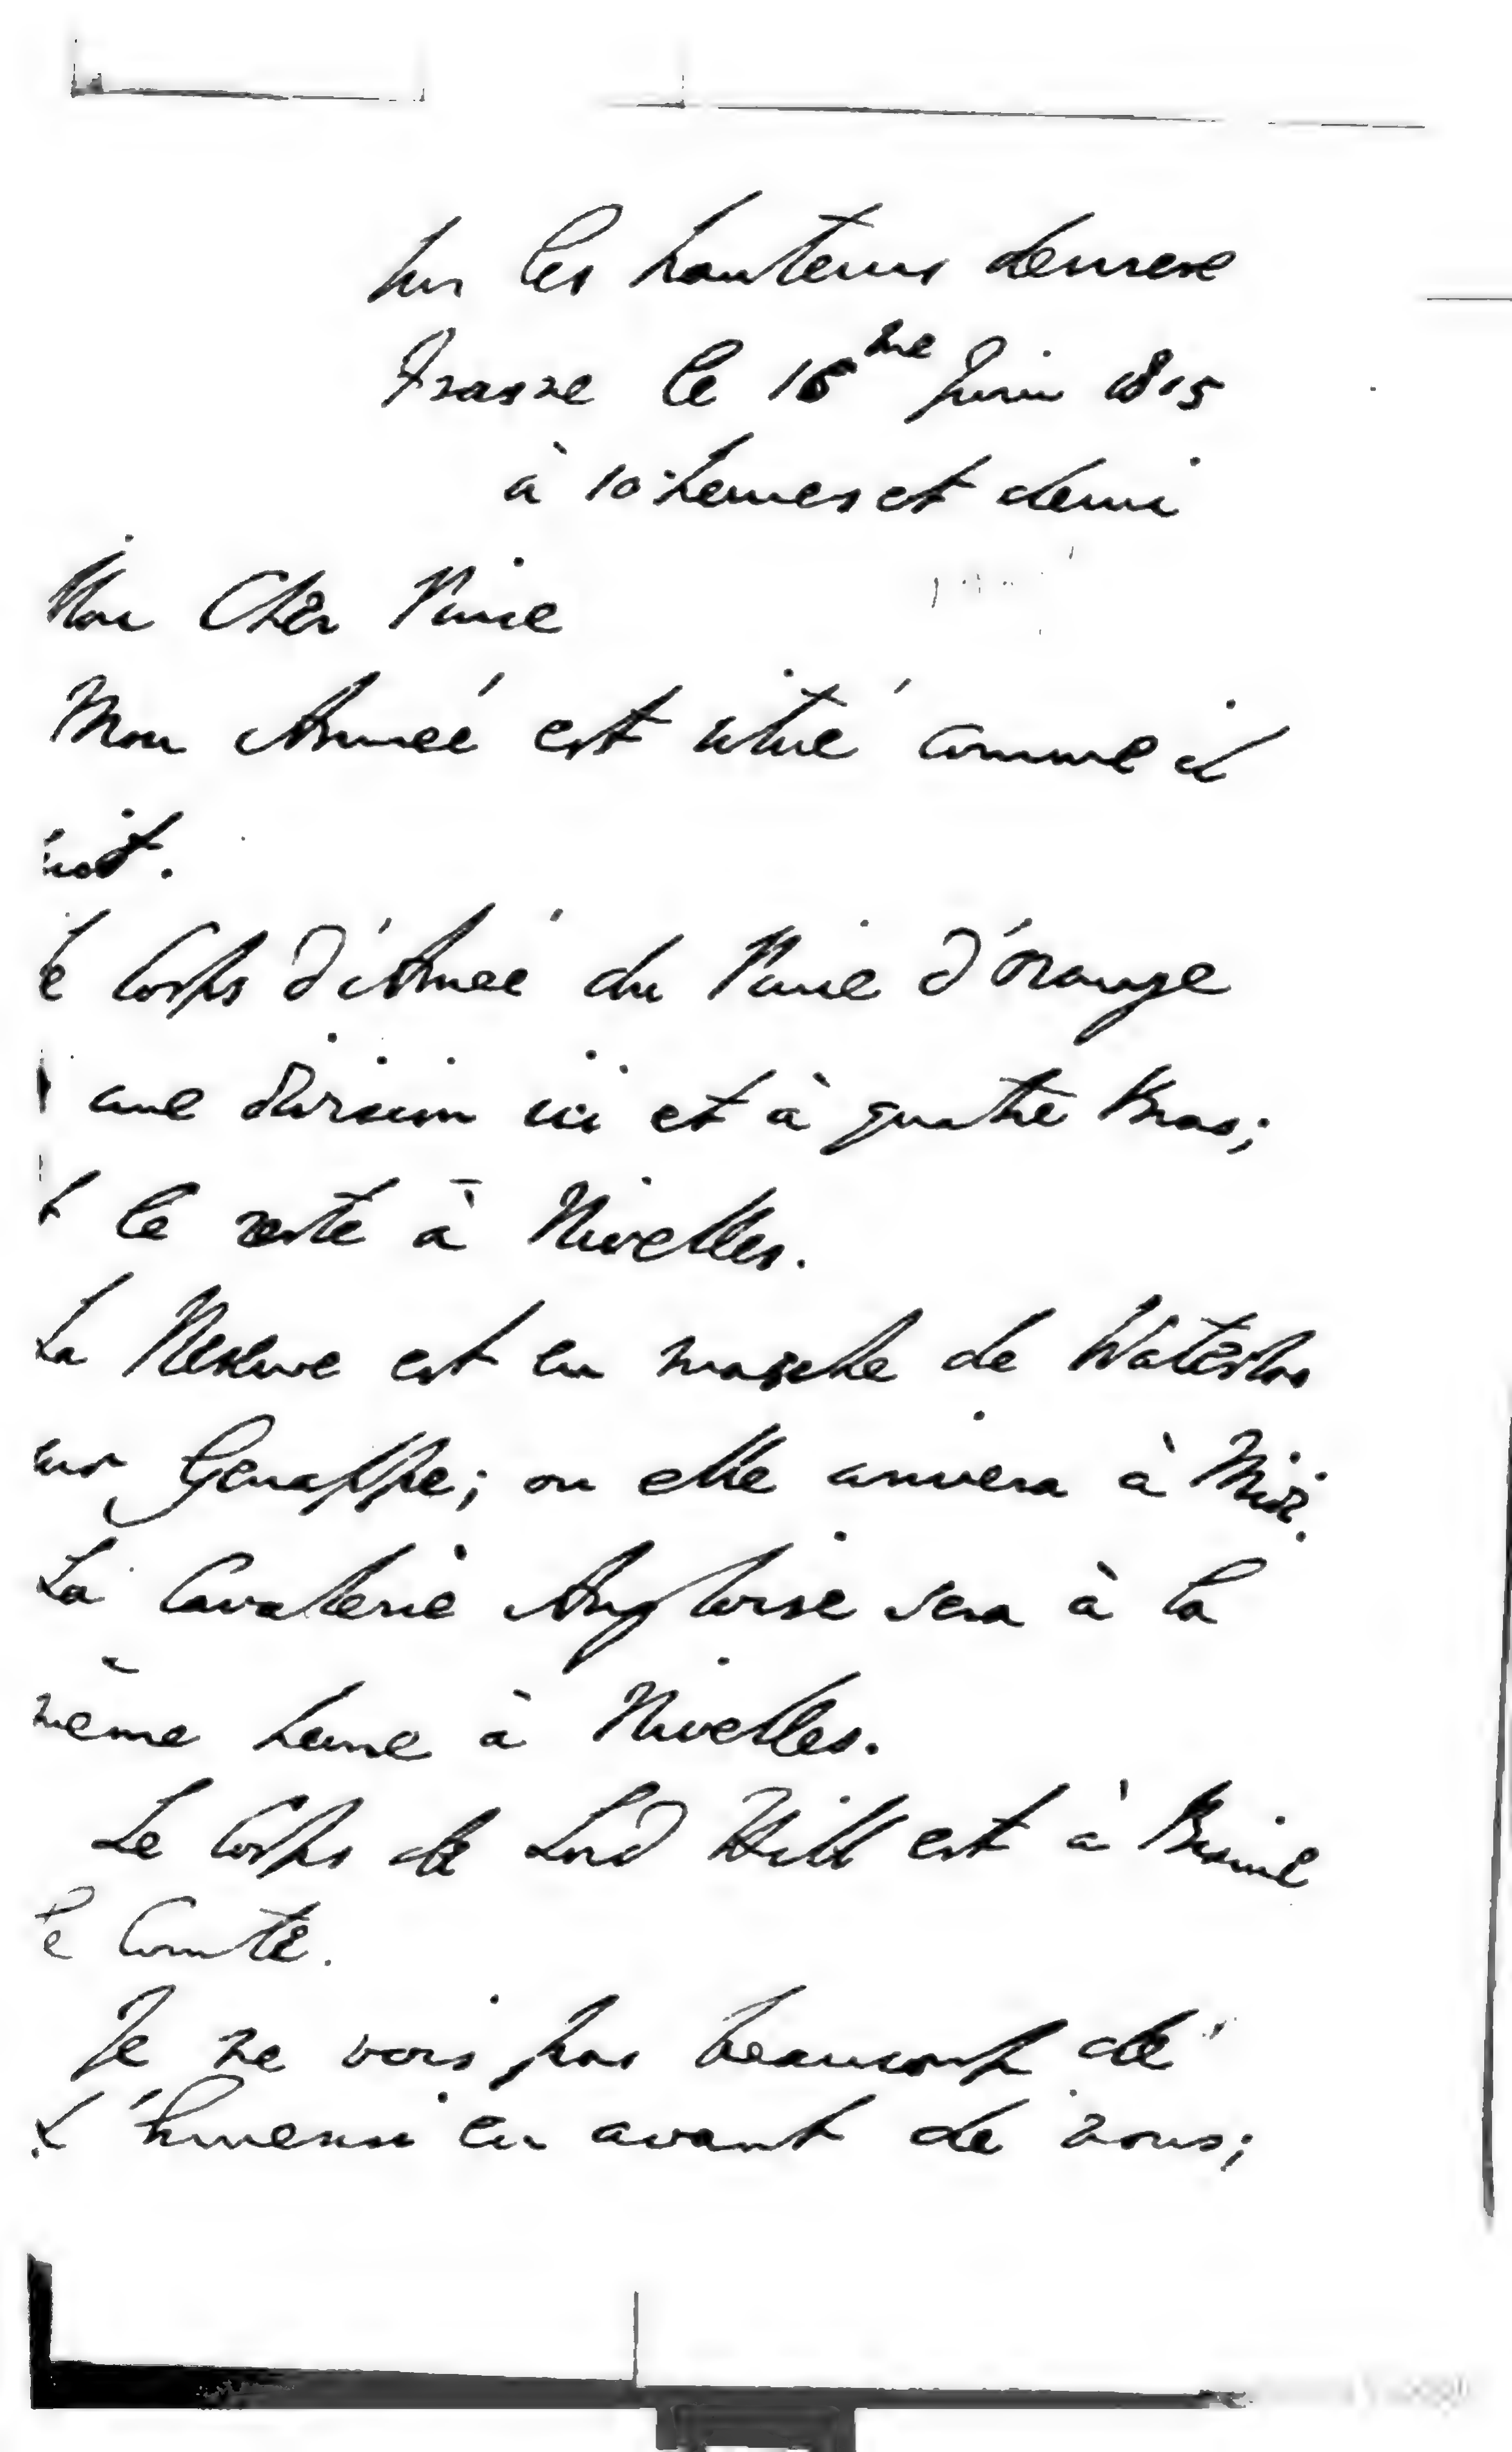 Sur les hauteurs derriere
Frasne le 16me Juin 1815
à 10 heures et demi
Mon Cher Prince
Mon Armeé est situé comme il
suit.
Le Corps d'Armeé du Prince d'Orange
une division ici et à quatre Bras;
le reste à Nivelles.
La Reserve est en marche de Waterloo
sur Genappe; ou elle arrivera à Midi.
La Cavalerie Angloise sera à la
même heure à Nivelles.
Le Corps de Lord Hill est à Braine
le Comte.
Je ne vois pas beaucoup de
l'Ennemi en avant de nous;